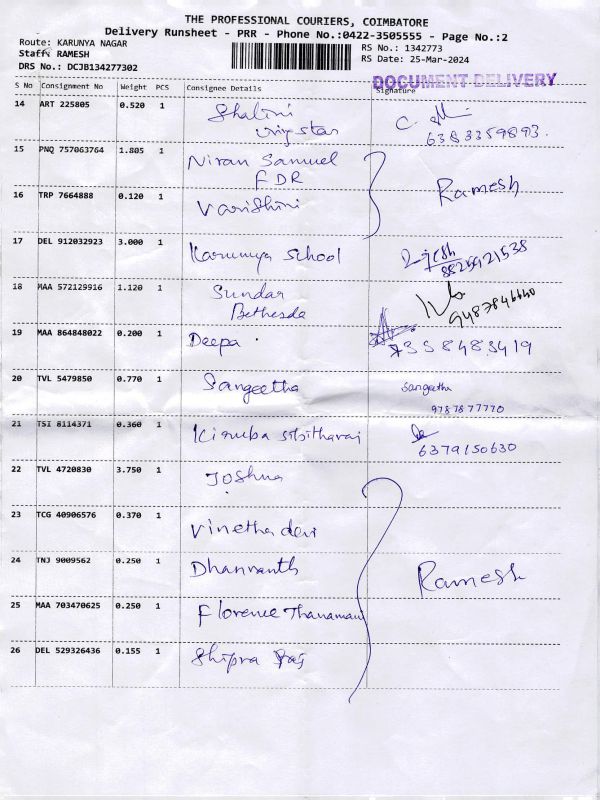 THE PROFESSIONAL COURIERS, COIMBATORE
Delivery Runsheet - PRR - Phone No.:0422-3505555 - Page No.:2
Route: KARUNYA NAGAR
RS No.: 1342773
Staff: RAMESH
RS Date: 25-Mar-2024
DRS No.: DCJB134277302
DOCUMENT DELIVERY
S No Consignment No Weight PCS Consignee Details Signature
14 ART 225805 0.520 1 Shalini
6383359893.
15 PNQ 757063764 1.805 1 Niran Samuel
FDR
16 TRP 7664888 0.120 1 Varishini Ramesh
17 DEL 912032923 3.000 1 Karunya School
8825921538
18 MAA 572129916 1.120 1 Sundar
Bethesda
19 MAA 864848022 0.200 1 Deepa 7358483419
20 TVL 5479850 0.770 1 Sangeetha Sangeetha
9787877770
21 TSI 8114371 0.360 1 Kiruba
6379150630
22 TVL 4720830 3.750 1 Joshua
23 TCG 40906576 0.370 1 Vinetha devi
24 TNJ 9009562 0.250 1 Dhanvanth Ramesh
25 MAA 703470625 0.250 1 Florence Thanamani
26 DEL 529326436 0.155 1 Shipra Raj